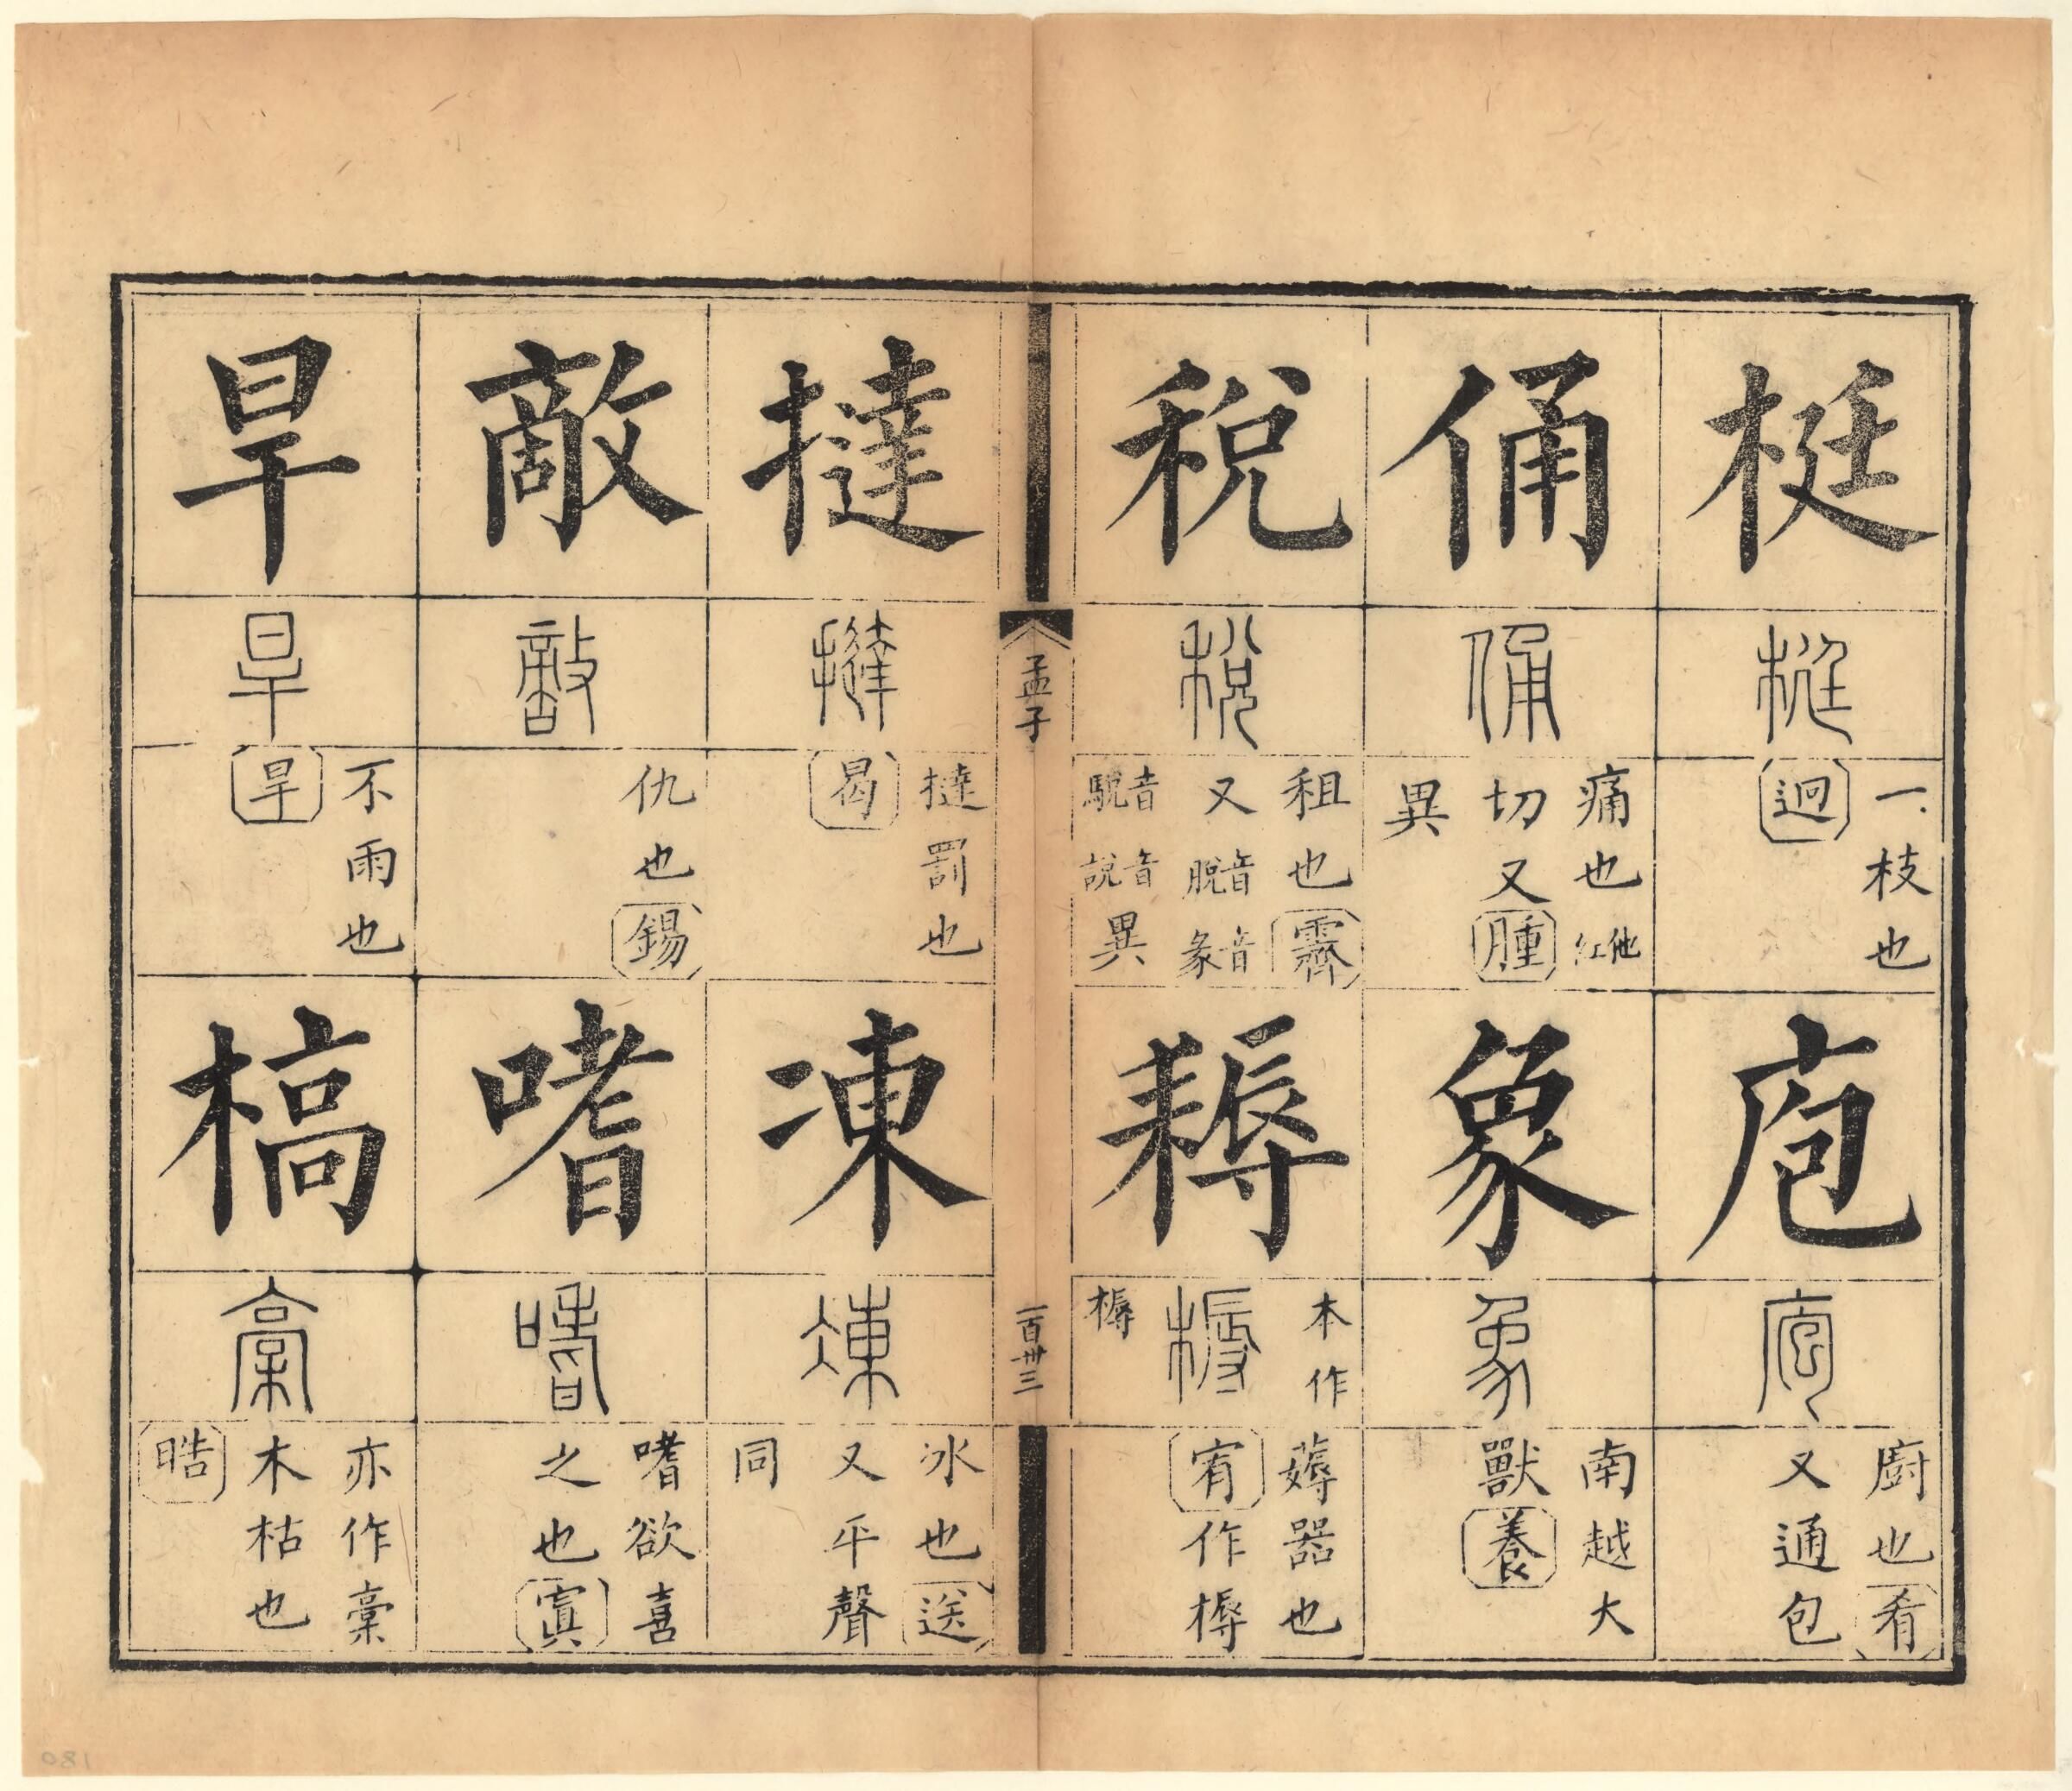 梃
梃
一枝也
迥
庖
庖
廚也肴
又通包
俑
俑
痛也他紅
切又腫
異
象
象
南越大
獸養
稅
稅
租也霽
又音脫音彖
音駾音說異
耨
本作
槈
槈
薅器也
宥作槈
孟子
一百卅三
撻
撻
撻罰也
曷
凍
凍
冰也送
又平聲
同
敵
敵
仇也錫
嗜
嗜
嗜欲喜
之也寘
旱
旱
不雨也
旱
槁
槀
亦作槀
木枯也
晧
180